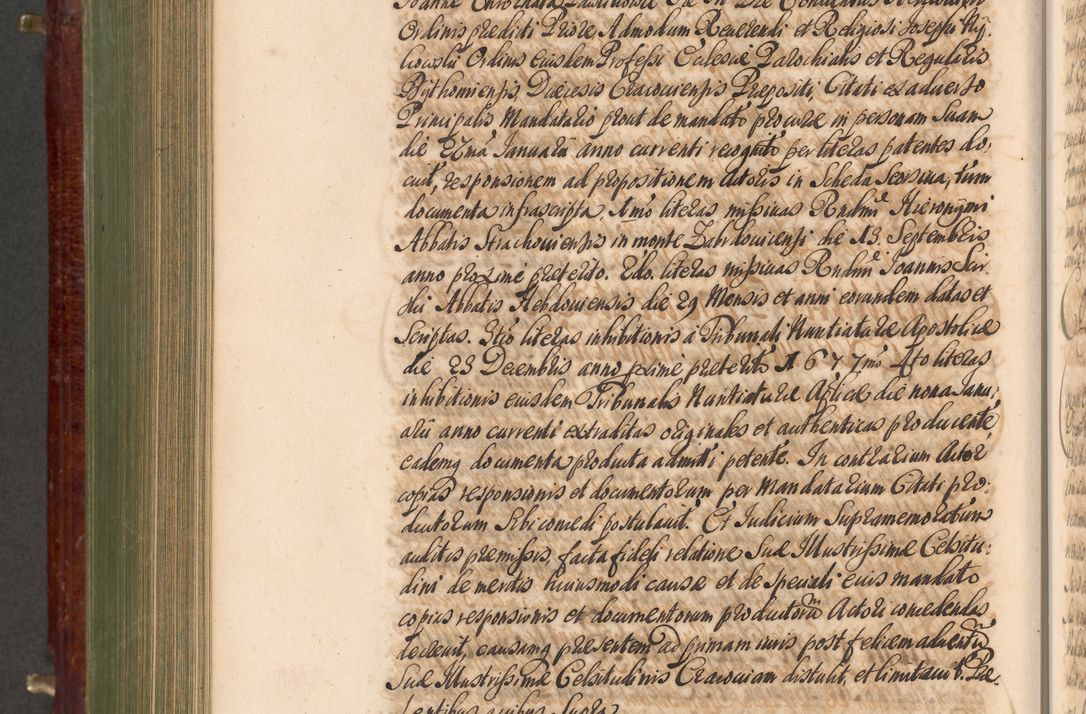 Ordinis præditi Priore, Admodum Reverendi et Religiosi Josephi
Ordinis eiusdem Professi Ecclesiæ Parochialis et Regularis
Bythomiensis, Diæcesis Cracoviensis Præpositi, Citati ex adverso
Principalis Mandatario prout de mandato procuræ in personam Suam
die 22ma Januarii anno currenti recognito per literas patentes do:
cuit, responsionem ad propositionem Actoris in Scheda Seorsiva, tum
documenta infrascripta, 1mo literas missivas Rndmi Hieronymi
Abbatis Strachoviensis in monte die 13. Septembris
anno proxime præterito. 2do. literas missivas Rndmi Joannis
Abbatis Hebdoviensis die 29 Mensis et anni eorundem datas et
Scriptas. 3tio literas inhibitionis à Tribunali Nuntiaturæ Apostolicæ
die 23 Decembris anno proxime præterito 1677mo 4to literas
inhibitionis eiusdem Tribunalis Nuntiaturæ Aplicæ die nona Janu:
arii anno currenti extraditas originales et authenticas producente
eademq documenta producta admitti petente. In contrarium Actore
copias responsionis et documentorum per Mandatarium Citati pro:
ductorum Sibi concedi postulavit. Et Judicium Supramemoratum
auditis præmissis, facta fideli relatione Suæ Illustrissimæ Celsitu:
dini de meritis huiusmodi causæ et de Speciali eius mandato
copias responsionis et documentorum productorum Actori concedendas
decrevit, causamq præsentem ad primam iuris post felicem adventum
Suæ Illustrissimæ Celsitudinis Cracoviam distulit, et limitavit. Præ:
sentibus quibus Supra